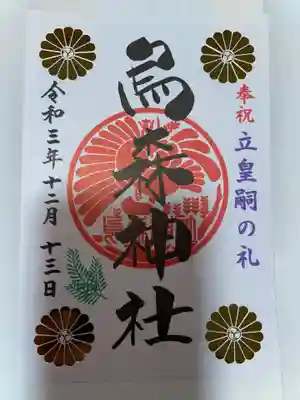 奉祝 立皇嗣の礼
烏森神社
令和三年十二月 十三日